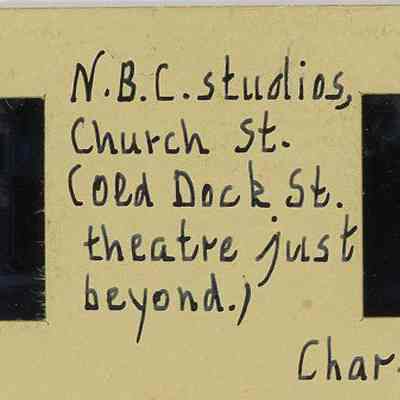 N.B.C. studios,
Church St.
(Old Dock St.
theatre just
beyond.)
Char